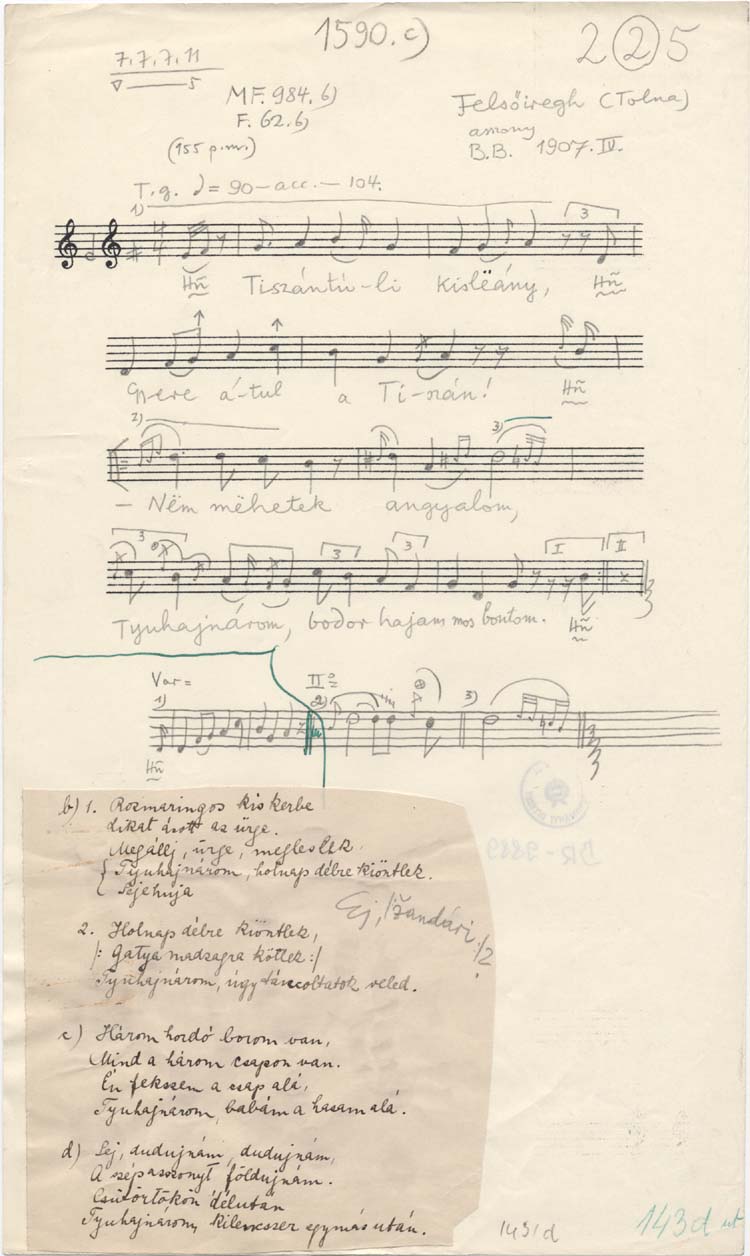 1590.c)
2 2 5
7.7.7.11
5
MF. 984. b)
F. 62. b)
(155 p.m.)
Felsőiregh (Tolna)
asszony
B.B. 1907. IV.
T.g. ♩ = 90 – acc. – 104.
1)
3
Hñ Tiszántú-li kislëány, Hñ
Gyere á-tul a Ti-szán! Hñ
2) 3)
– Nëm mëhetek angyalom,
3 3 3 I II
Tyuhajnárom, bodor hajam mos bontom. Hñ
Var=
1) II 2) 3)
Hñ
b) 1. Rozmaringos kis kerbe
Likat ásott az ürge.
Megállj, ürge, megleslek
Tyuhajnárom, holnap débre kiöntlek.
Sejehúja
Ej, /:zandári:/2
2. Holnap débre kiöntlek,
/: Gatya madzagra kötlek :/
Tyuhajnárom, úgy táncoltatok veled.
c) Három hordó borom van,
Mind a három csapon van.
Én fekszem a csap alá,
Tyuhajnárom, babám a hasam alá.
d) Sej, dudujnám, dudujnám,
A szép asszonyt földujnám.
Csütörtökön délután
Tyuhajnárom, kilencszer egymás után.
BR-9889
143/d
143d